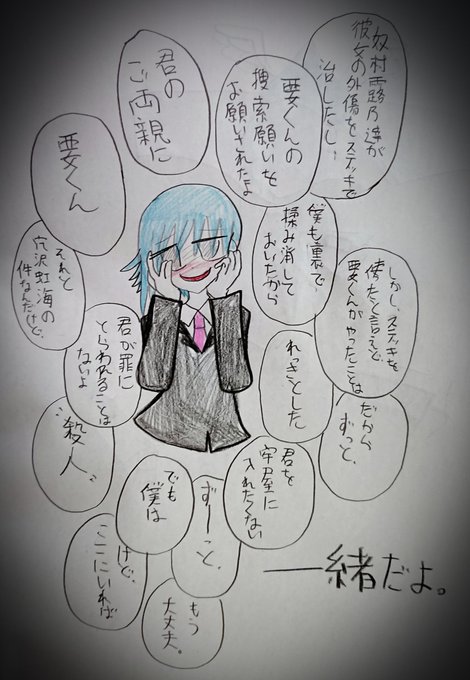 要くん
君の
ご両親に
要くんの
捜索願いを
お願いされたよ
それと
穴沢虹海の
件なんだけど、
奴村露乃達が
彼女の外傷をステッキで
治したし、
僕も裏で、
揉み消して
おいたから
君が罪に
とらわれることは
ないよ
しかし、ステッキを
使たと言えど、
要くんがやったことは
れっきとした
殺人。
でも
僕は
君を
牢屋に
入れたくない
けど、
ここにいれば
もう
大丈夫。
だから
ずっと、
ずーと、
一緒だよ。